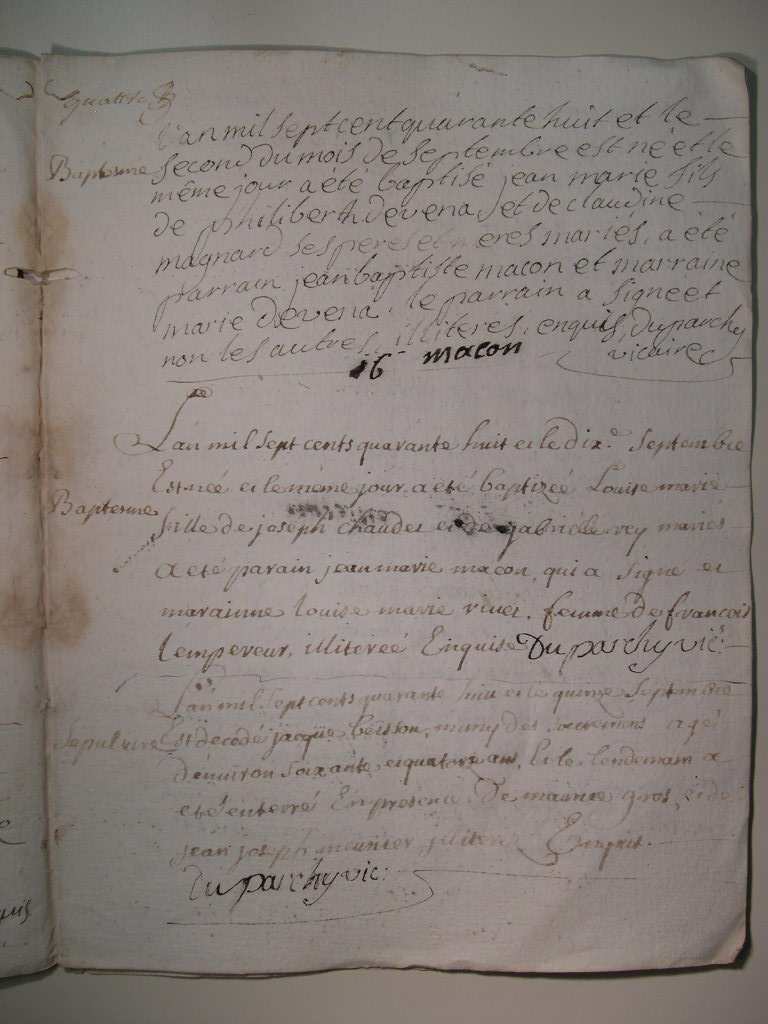 quattre
L'an mil sept cent quarante huit et le
Baptesme second du mois de septembre est né et le
même jour a été baptisé jean marie fils
de philiberth devena et de claudine
magnard ses peres et meres mariés, a été
parrain jean baptiste macon et marraine
marie devena. le parrain a signé et
non les autres, illiteres, enquis, duparchy
macon vicaire
L'an mil sept cents quarante huit et le dix.e septembre
Est née et le même jour a été baptizéé Louise marie
Baptesme fille de joseph chaudet et de gabrielle rey mariés
a été parain jean marie macon, qui a signé et
marainne Louise marie femme de francois
Lempereur, illiteréé Enquise Duparchy vic.
L'an mil sept cents quarante huit et le quinze septembre
Sepulture Est decedé jacque besson, muny des sacremens agé
d'environ soixante et quatorze ans, Et le lendemain a
eté enterré En presence De maurice gros, et de
jean joseph meunier illiteré Enquis.
Duparchy vic: